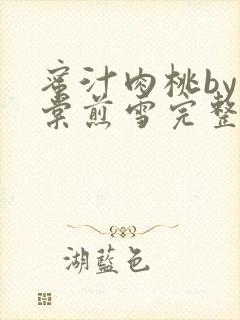 蜜汁肉桃by
棠煎雪完整
湖藍色